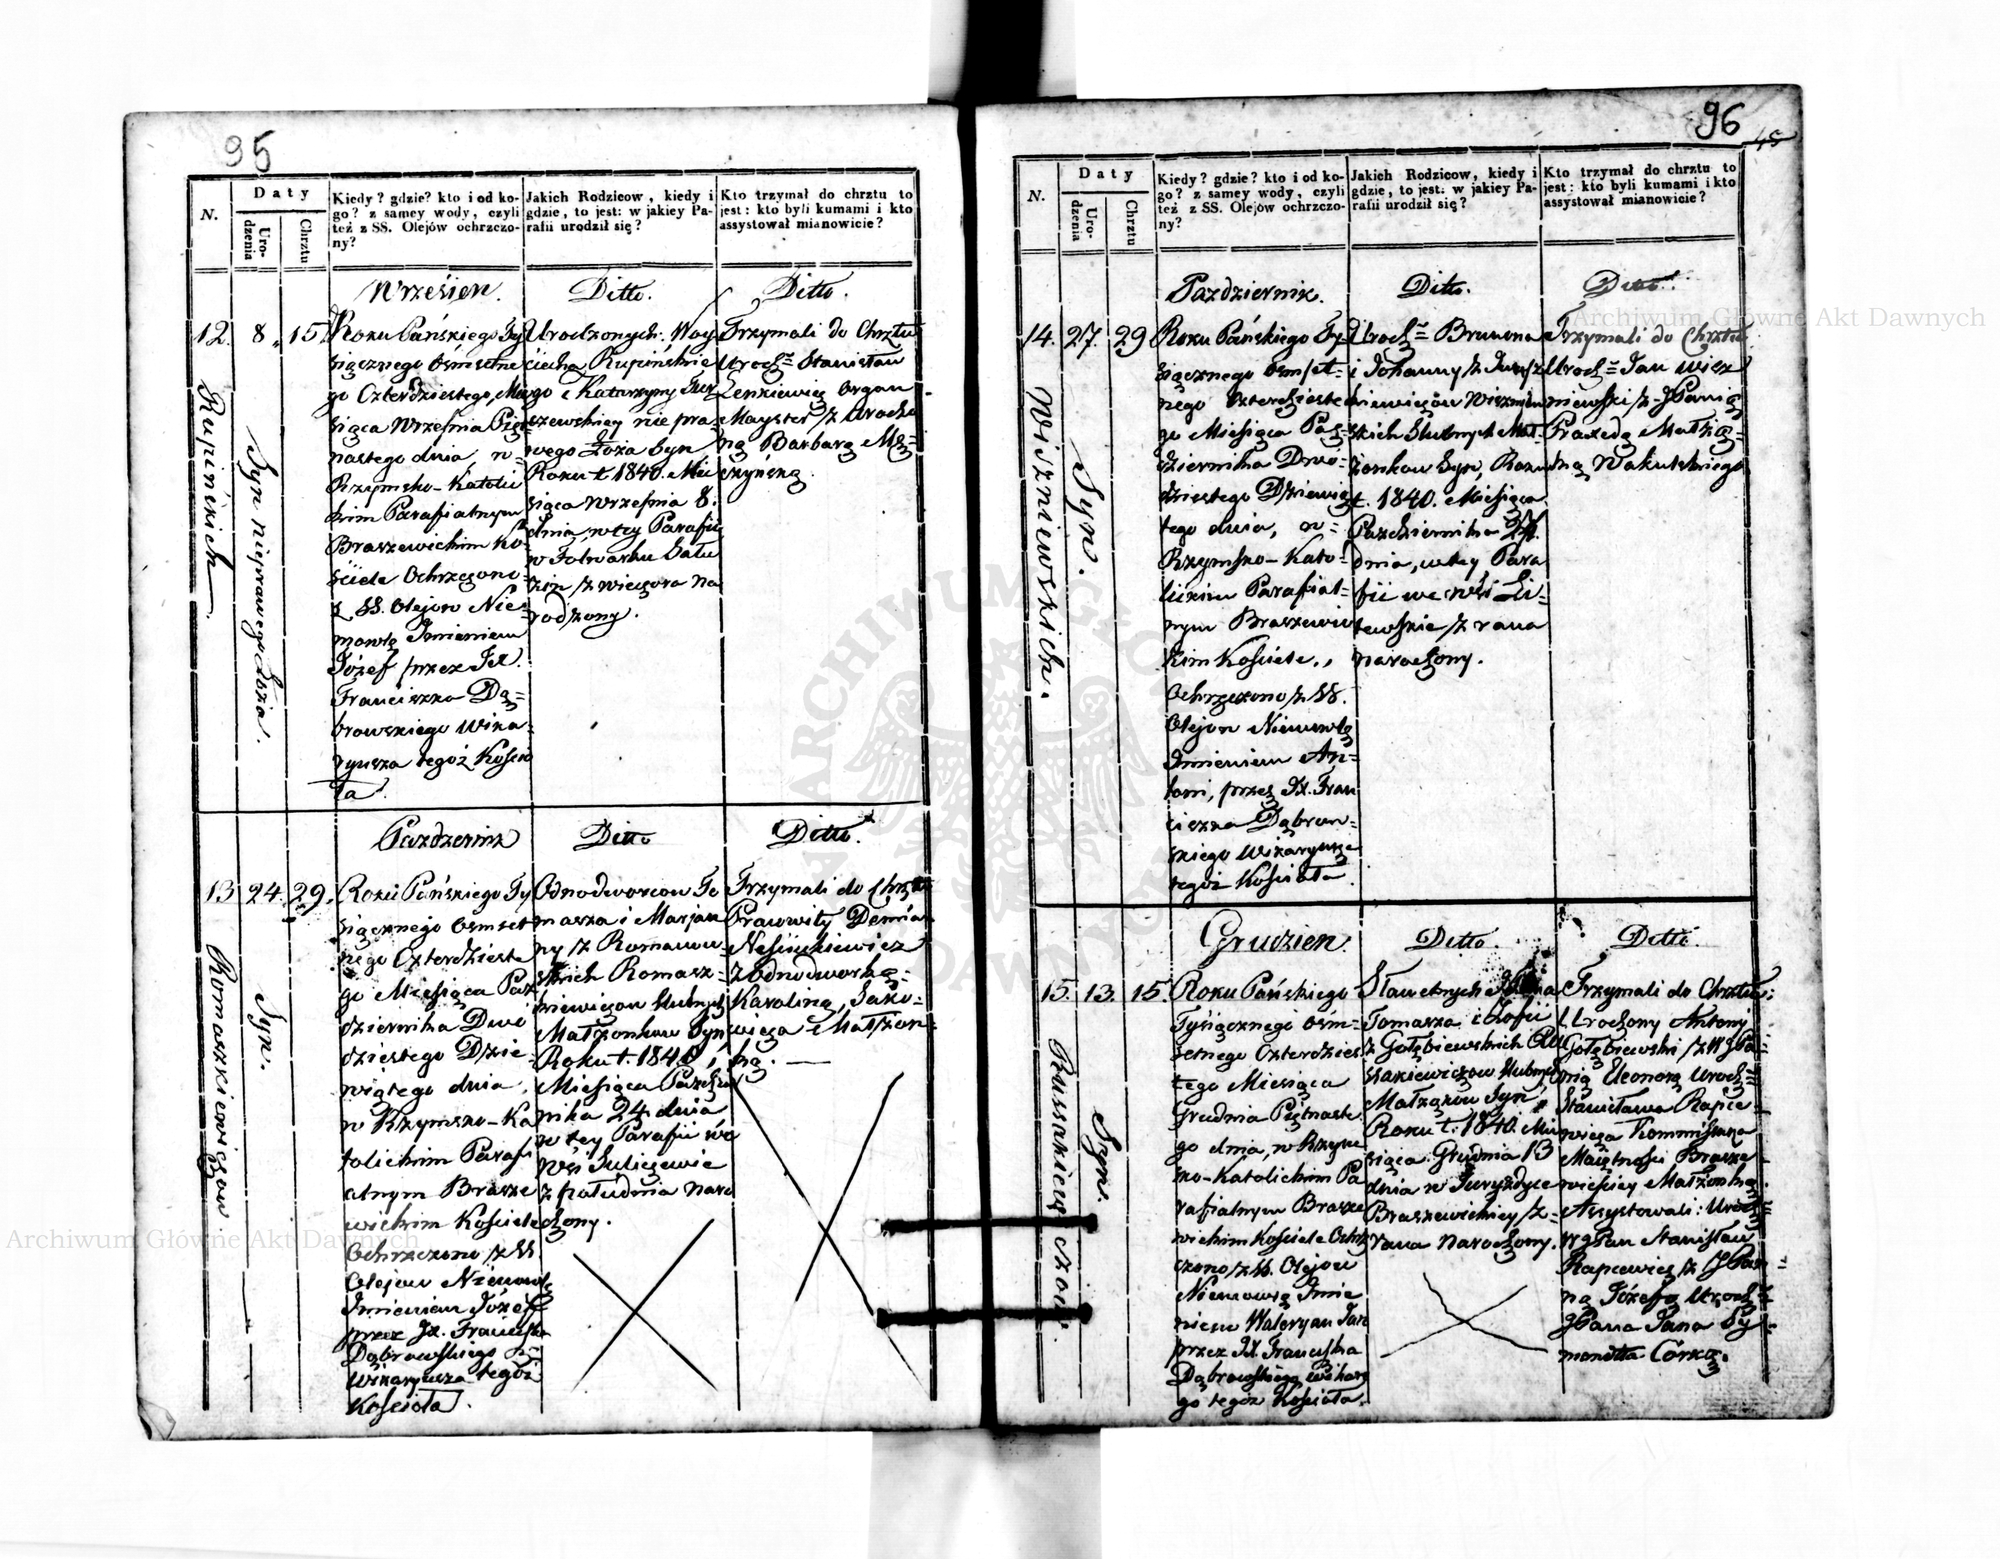 95
N.
Daty
Uro-
dzenia
Chrztu
Kiedy? gdzie? kto i od ko-
go? z samey wody, czyli
też z SS. Olejów ochrzczo-
ny?
Jakich Rodzicow, kiedy i
gdzie, to jest: w jakiey Pa-
rafii urodził się?
Kto trzymał do chrztu to
jest: kto byli kumami i kto
assystował mianowicie?
12.
8.
15.
Rupińskich
Syn nieprawego Łoża.
Wrzesień.
Roku Pańskiego Ty
siącznego Ośmsetne
go Czterdziestego, Mie
siąca Września Pięt
nastego dnia, w
Rzymsko-Katolic
kim Parafialnym
Braszewickim Ko
ściele Ochrzczono
z SS. Olejow Nie-
mowlę Imieniem
Józef przez JX.
Franciszka Dą-
browskiego Wika-
ryusza tegoż Kościo
ła.
Ditto.
Urodzonych: Woy
ciecha Rupińskie
go i Katarzyny
szewskiey nie pra-
wego Łoża Syn
Roku t. 1840. Mie
siąca Września 8.
dnia, w tey Parafii
w Folwarku
z wieczora na
rodzony.
Ditto.
Trzymali do Chrztu
Urodz= Stanisław
Zenkiewicz Organ
Mayster z Urodzo
ną Barbarą
13
24.
29.
Romaszkiewiczow
Syn.
Pazdziernik
Roku Pańskiego Ty
siącznego Osmset
nego Czterdzieste
go Miesiąca Paz
dziernika Dwó
dziestego Dzie-
wiątego dnia,
w Rzymsko-Ka
tolickim Parafi
alnym Brasze
wickim Kościele
Ochrzczono z SS.
Olejow Niemowlę
Imieniem Józef
przez JX. Franciszka
Dąbrowskiego
Wikaryusza tegoż
Kościoła.
Ditto
Odnodworcow To
masza i Marjan
ny z Romanow
skich Romasz-
kiewiczow Slubnych
Małżonkow Syn
Roku t. 1840,
Miesiąca Pazdzier
nika 24. dnia
w tey Parafii we
Wsi
z południa naro
dzony.
Ditto.
Trzymali do Chrztu
Prawowity
z Odnodworką
Karoliną, Jako-
wicza Małżon-
ką.
96
N.
Daty
Uro-
dzenia
Chrztu
Kiedy? gdzie? kto i od ko-
go? z samey wody, czyli
też z SS. Olejów ochrzczo-
ny?
Jakich Rodzicow, kiedy i
gdzie, to jest: w jakiey Pa-
rafii urodził się?
Kto trzymał do chrztu to
jest: kto byli kumami i kto
assystował mianowicie?
14.
27.
29
Wiszniewskich.
Syn.
Pazdziernik.
Roku Pańskiego Ty-
siącznego Osmset-
nego Czterdzieste
go Miesiąca Paz-
dziernika Dwó-
dziestego Dziewią
tego dnia, w
Rzymsko-Kato-
lickim Parafial-
nym Braszewic
kim Kościele,
Ochrzczono z SS.
Olejow Niemowlę
Imieniem An-
toni, przez JX. Fran
ciszka Dąbrow-
skiego Wikaryusza
tegoż Kościoła.
Ditto.
Urodz= Brunona
i Johanny z
kiewiczow Wiszniew
skich Slubnych Mał-
żonkow Syn, Roku
t. 1840. Miesiąca
Pazdziernika 27.
dnia, w tey Para
fii we wsi Li-
tewskie z rana
narodzony.
Ditto.
Trzymali do Chrztu
Urodz= Jan Wisz
niewski z JPanią
Praxedą Małżą-
ną Wakulskiego
15.
13.
15.
Russakiewiczow.
Syn.
Grudzien.
Roku Pańskiego
Tysiącznego Ośm-
setnego Czterdzies
tego Miesiąca
Grudnia Piętnaste
go dnia, w Rzym
sko-Katolickim Pa
rafialnym Brasze
wickim Kościele Ochrz
czono z SS. Olejow
Niemowlę Imie
niem Waleryan Jan
przez JX. Franciszka
Dąbrowskiego Wikary
go tegoż Kościoła.
Ditto.
Sławetnych
Tomasza i Zofii
z Gołębiewskich Ru
ssakiewiczow Slubnych
Małżonkow Syn
Roku t. 1840. Mie
siąca Grudnia 13
dnia w Juryzdyce
Braszewickiey z
rana narodzony.
Ditto.
Trzymali do Chrztu:
Urodzony Antoni
Gołębiewski z WJPa-
nią Eleonorą Urodz=
Stanisława Rapce-
wicza Kommissarza
Maiętności Brasze
wickiey Małżonką.
Assystowali: Urodz=
WJPan Stanisław
Rapcewicz z JPan-
ną Józefą Urodz=
JPana Jana Sy-
monotta Corką.
Archiwum Główne Akt Dawnych
Archiwum Główne Akt Dawnych
ARCHIWUM GŁÓWNE AKT DAWNYCH